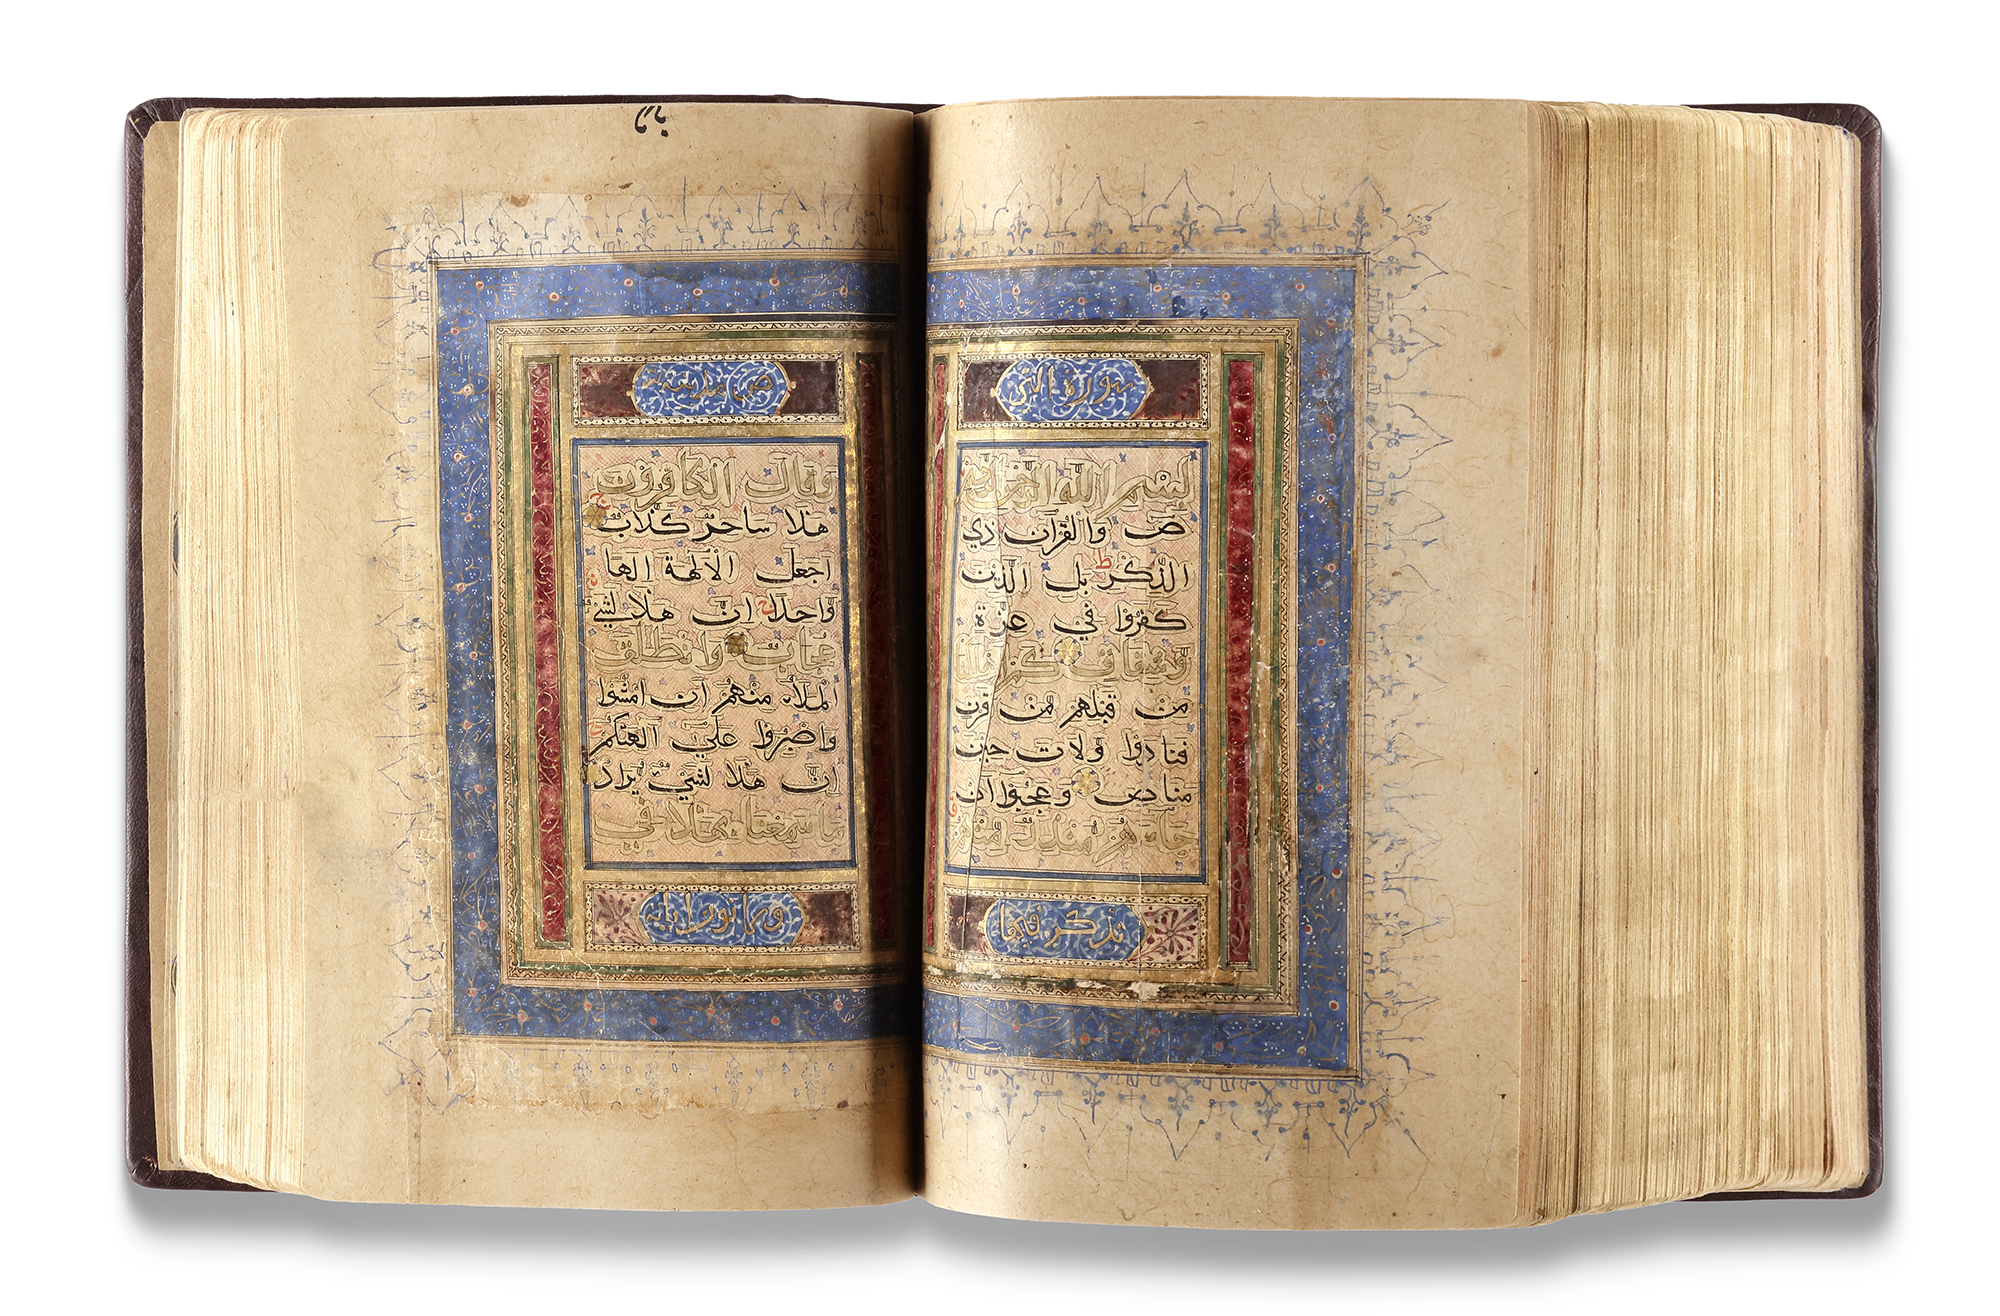 سورة
بسم الله الرحمن الرحيم
ص والقرآن ذي
الذكر بل الذين
كفروا في عزة
وشقاق كم اهلكنا
من قبلهم من قرن
فنادوا ولات حين
مناص وعجبوا ان
جاءهم منذر منهم
ص
وقال الكافرون
هذا ساحر كذاب
اجعل الآلهة الها
واحدا ان هذا لشيء
عجاب وانطلق
الملأ منهم ان امشوا
واصبروا على آلهتكم
ان هذا لشيء يراد
ما سمعنا بهذا في